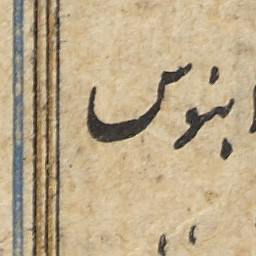 ابنوس